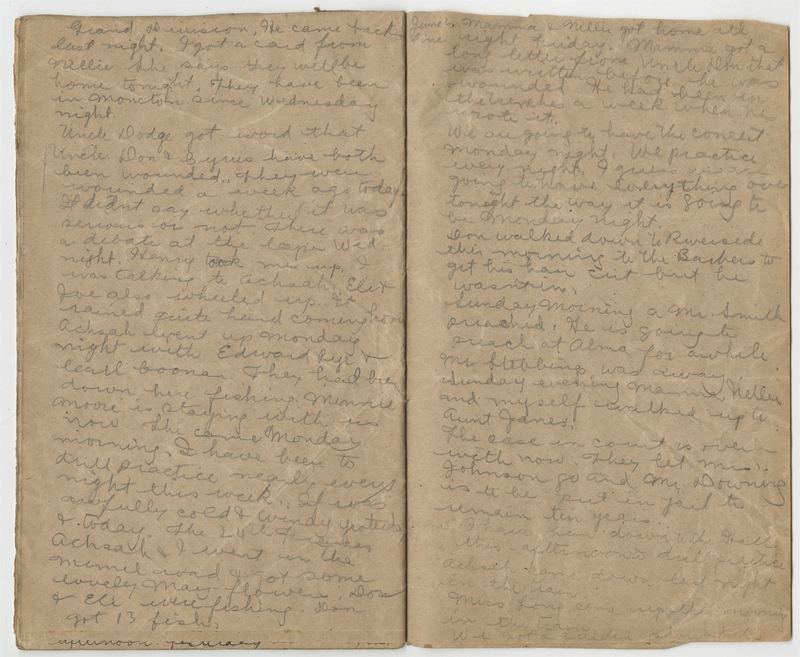 Grand Division. He came back
last night. I got a card from
Nellie she says they will be
home tonight. They have been
in Moncton since Wednesday
night.
Uncle Dodge got word that
Uncle Don & Byrus have both
been wounded. They were
wounded a week ago today.
It didnt say whether it was
serious or not There was
a debate at the Cape Wed.
night. Henry took me up. I
was talking to Achsah. Eli &
Joe also wheeled up. It
rained quite hard coming home
Achsah went up Monday
night with Edward Pye &
Carll Boonan They had been
down here fishing. Minnie
Moore is staying with us
now She came Monday
morning. I have been to
drill practice nearly every
night this week. It was
awfully cold & windy yesterday
& today. The 24th
Achsah & I went in the
road & got some
lovely May flowers. Don
& Eli were fishing. Don
got 13 fish.
afternoon yesterday
June
Mamma & Nellie got home all
right Friday. Mamma got a
long letter from Uncle Don that
was written before he was
wounded He had been in
the trenches a week when he
wrote it.
We are going to have the concert
Monday night. We practice
every night. I guess we are
going to have everything over
tonight the way it is going to
be Monday night.
Don walked down to Riverside
this morning to the Barbers to
get his hair cut but he
wasnt in.
Sunday Morning a Mr. Smith
preached. He is going to
preach at Alma for awhile.
Mr Stebbings was away
Sunday evening Mamma, Nellie
and myself walked up to
Aunt Janes.
The case in court is over
with now. They let Mrs.
Johnson go and Mr. Downing
is to be put in jail to
remain ten years.
I have been down with
this afternoon to drill practice
Achsah came down last night
in the train.
Miss Long came up this morning
in the train.
We got a card